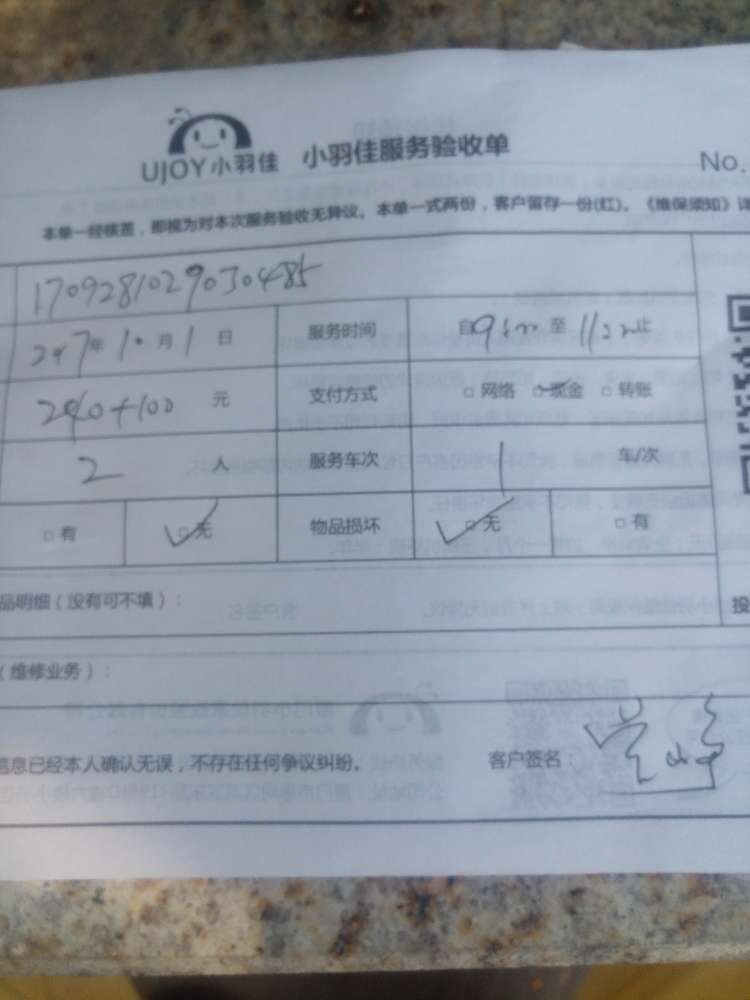 UJOY小羽佳 小羽佳服务验收单
No.
本单一经核差，即视为对本次服务验收无异议。本单一式两份，客户留存一份(红)。《维保须知》详
1709281029030485
2017年10月1日 服务时间 自9:00至11:00止
240+100元 支付方式 □网络 □现金 □转账
2人 服务车次 1车/次
□有 □无 物品损坏 □无 □有
品明细（没有可不填）： 投
（维修业务）：
信息已经本人确认无误，不存在任何争议纠纷。 客户签名：